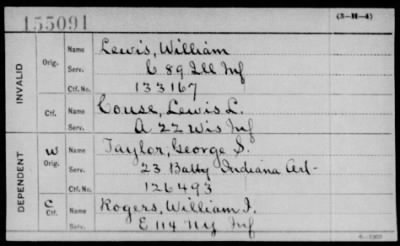 155091 (3-H-4)
INVALID
Orig. Name Lewis, William
Serv. C 89 Ill Inf
Ctf. No. 133167
Ctf. Name Couse, Lewis L.
Serv. A 22 Wis Inf
DEPENDENT
W Orig. Name Taylor, George S.
Serv. 23 Batty Indiana Art-
Ctf. No. 126493
C Ctf. Name Rogers, William J.
Serv. E 114 NY Inf